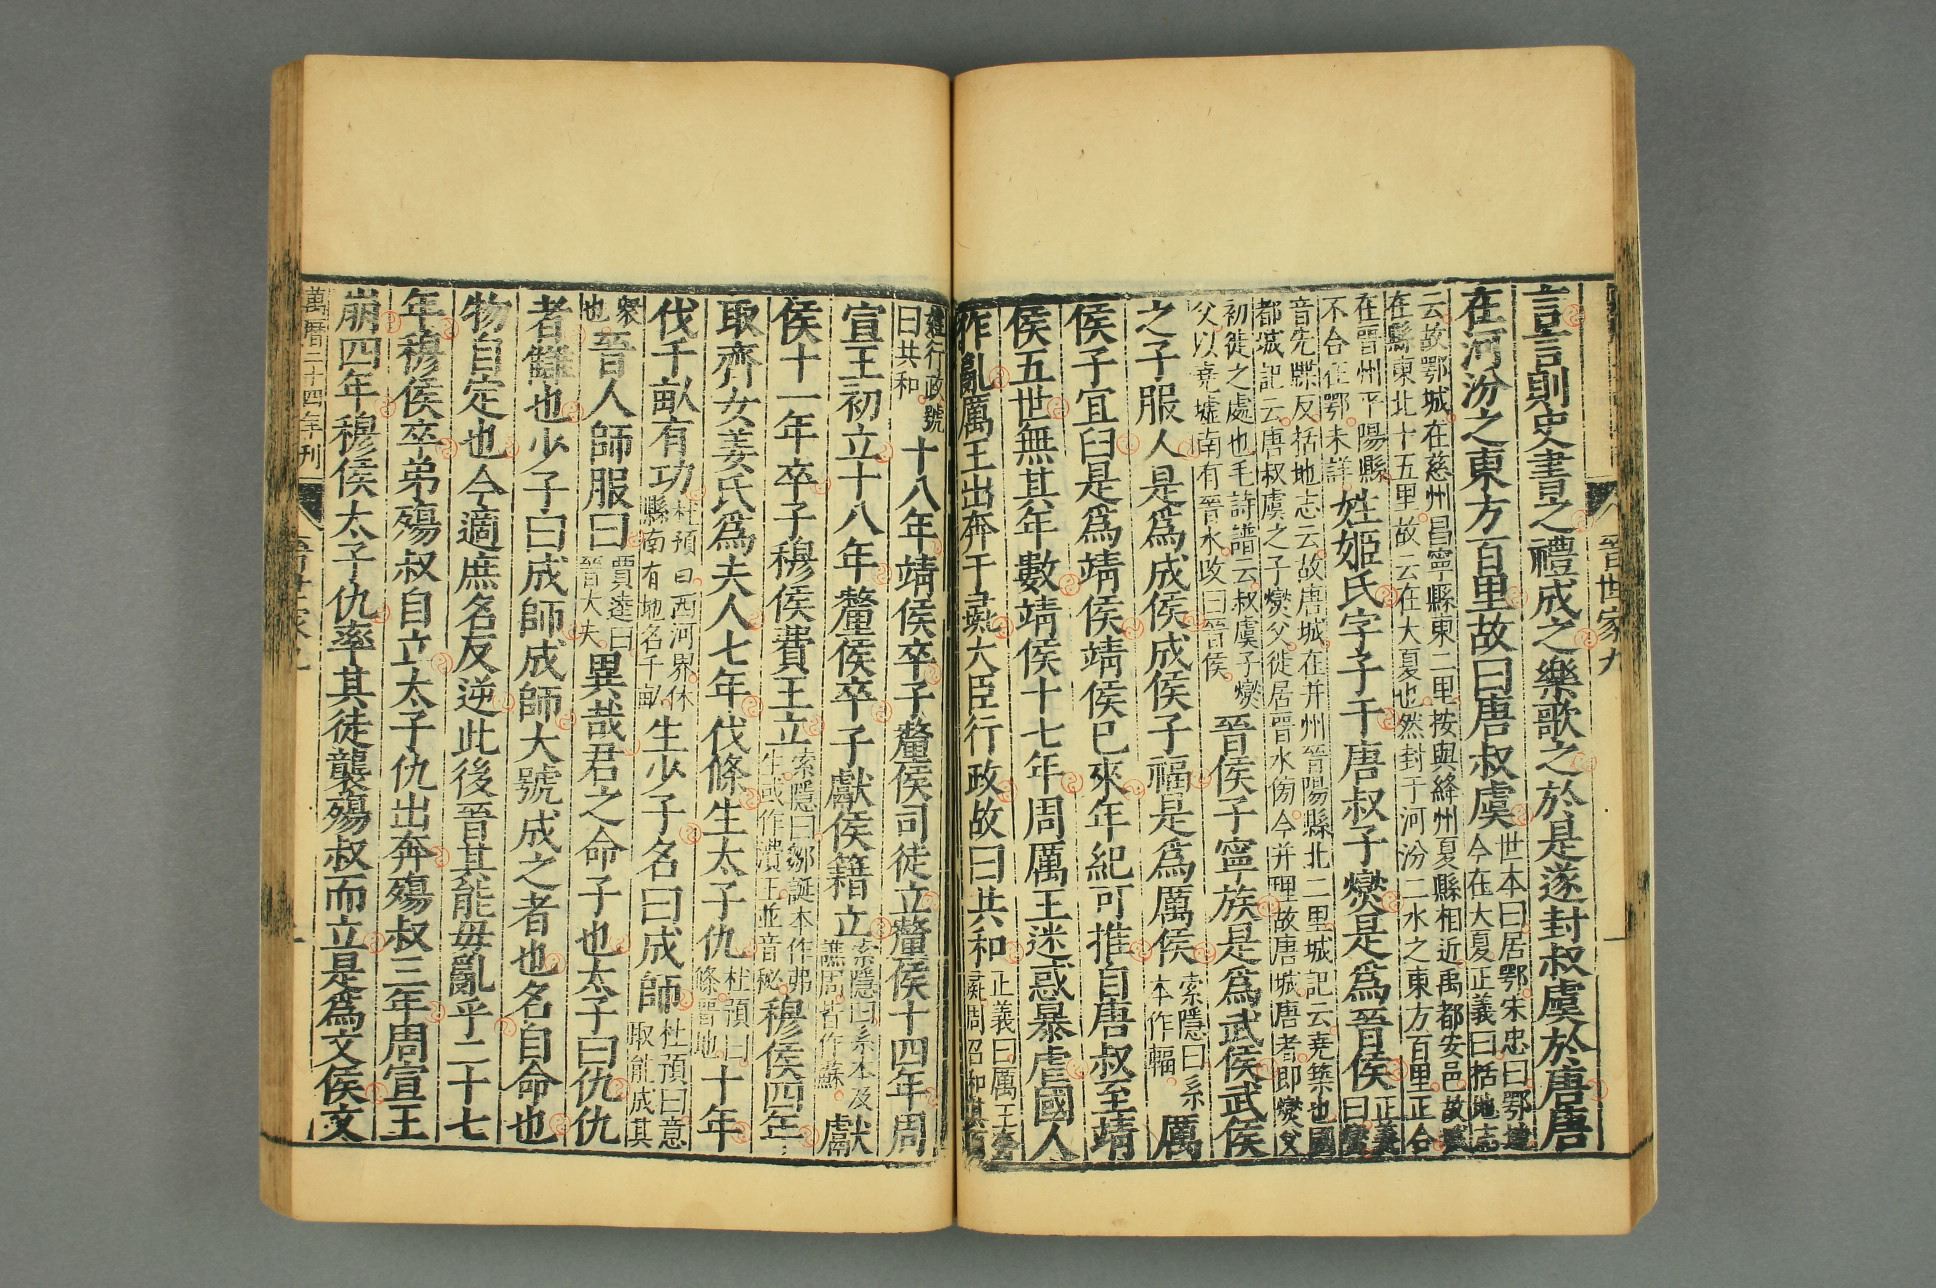 晉世家九
言言則史書之禮成之樂歌之於是遂封叔虞於唐唐
在河汾之東方百里故曰唐叔虞世本曰居鄂宋忠曰鄂地今在大夏正義曰括地志
云故鄂城在慈州昌寧縣東二里按與絳州夏縣相近禹都安邑故城
在縣東北十五里故云在大夏也然封于河汾二水之東方百里正合
在晉州平陽縣不合在鄂未詳姓姬氏字子于唐叔子燮是爲晉侯正義曰燮
音先牒反括地志云故唐城在并州晉陽縣北二里城記云堯築也
都城記云唐叔虞之子燮父徙居晉水傍今并理故唐城唐者即燮父
初徙之處也毛詩譜云叔虞子燮父以堯墟南有晉水改曰晉侯晉侯子寧族是爲武侯武侯
之子服人是爲成侯成侯子福是爲厲侯索隱曰系本作輻厲
侯子宜臼是爲靖侯靖侯已來年紀可推自唐叔至靖
侯五世無其年數靖侯十七年周厲王迷惑暴虐國人
作亂厲王出奔于彘大臣行政故曰共和正義曰厲王奔彘周召和其百
姓行政號曰共和十八年靖侯卒子釐侯司徒立釐侯十四年周
宣王初立十八年釐侯卒子獻侯籍立索隱曰系本及譙周皆作蘇獻
侯十一年卒子穆侯費王立索隱曰鄒誕本作弗生或作濆王並音祕穆侯四年
取齊女姜氏爲夫人七年伐條生太子仇杜預曰條晉地十年
伐千畝有功杜預曰西河界休縣南有地名千畝生少子名曰成師杜預曰意取能成其
衆也晉人師服曰賈逵曰晉大夫異哉君之命子也太子曰仇仇
者讎也少子曰成師成師大號成之者也名自命也
物自定也今適庶名反逆此後晉其能毋亂乎二十七
年穆侯卒弟殤叔自立太子仇出奔殤叔三年周宣王
崩四年穆侯太子仇率其徒襲殤叔而立是爲文侯文
萬曆二十四年刊